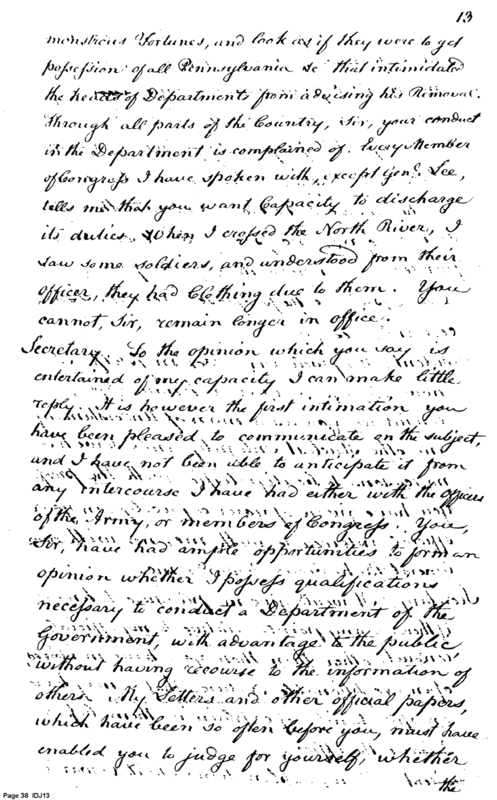 13
monstrous Fortunes, and look as if they were to get
possession of all Pennsylvania &c that intimidated
the heads of Departments from advising his Removal.
Through all parts of the Country, Sir, your conduct
in the Department is complained of. Every Member
of Congress I have spoken with, except Genl. Lee,
tells me that you want Capacity to discharge
its duties. When I crossed the North River, I
saw some soldiers, and understood from their
officer, they had Clothing due to them. You
cannot, Sir, remain longer in office.
Secretary. To the opinion which you say is
entertained of my capacity I can make little
reply. It is however the first intimation you
have been pleased to communicate on the subject,
and I have not been able to anticipate it from
any intercourse I have had either with the officers
of the Army, or members of Congress. You,
Sir, have had ample opportunities to form an
opinion whether I possess qualifications
necessary to conduct a Department of the
Government, with advantage to the public
without having recourse to the information of
others. My Letters and other official papers,
which have been so often before you, must have
enabled you to judge for yourself, whether
the
Page 38 IDJ13